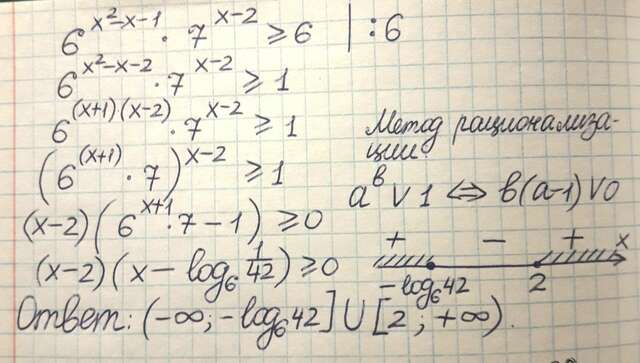 6^{x²-x-1} · 7^{x-2} ⩾ 6 | : 6
6^{x²-x-2} · 7^{x-2} ⩾ 1
6^{(x+1)(x-2)} · 7^{x-2} ⩾ 1
(6^{(x+1)} · 7)^{x-2} ⩾ 1
(x-2)(6^{x+1} · 7 - 1) ⩾ 0
(x-2)(x - log₆ 1/42) ⩾ 0
Метод рационализа-
ции
a^в ∨ 1 ⇔ в(a-1) ∨ 0
+ - + x
-log₆42 2
Ответ: (-∞; -log₆42] ∪ [2; +∞).